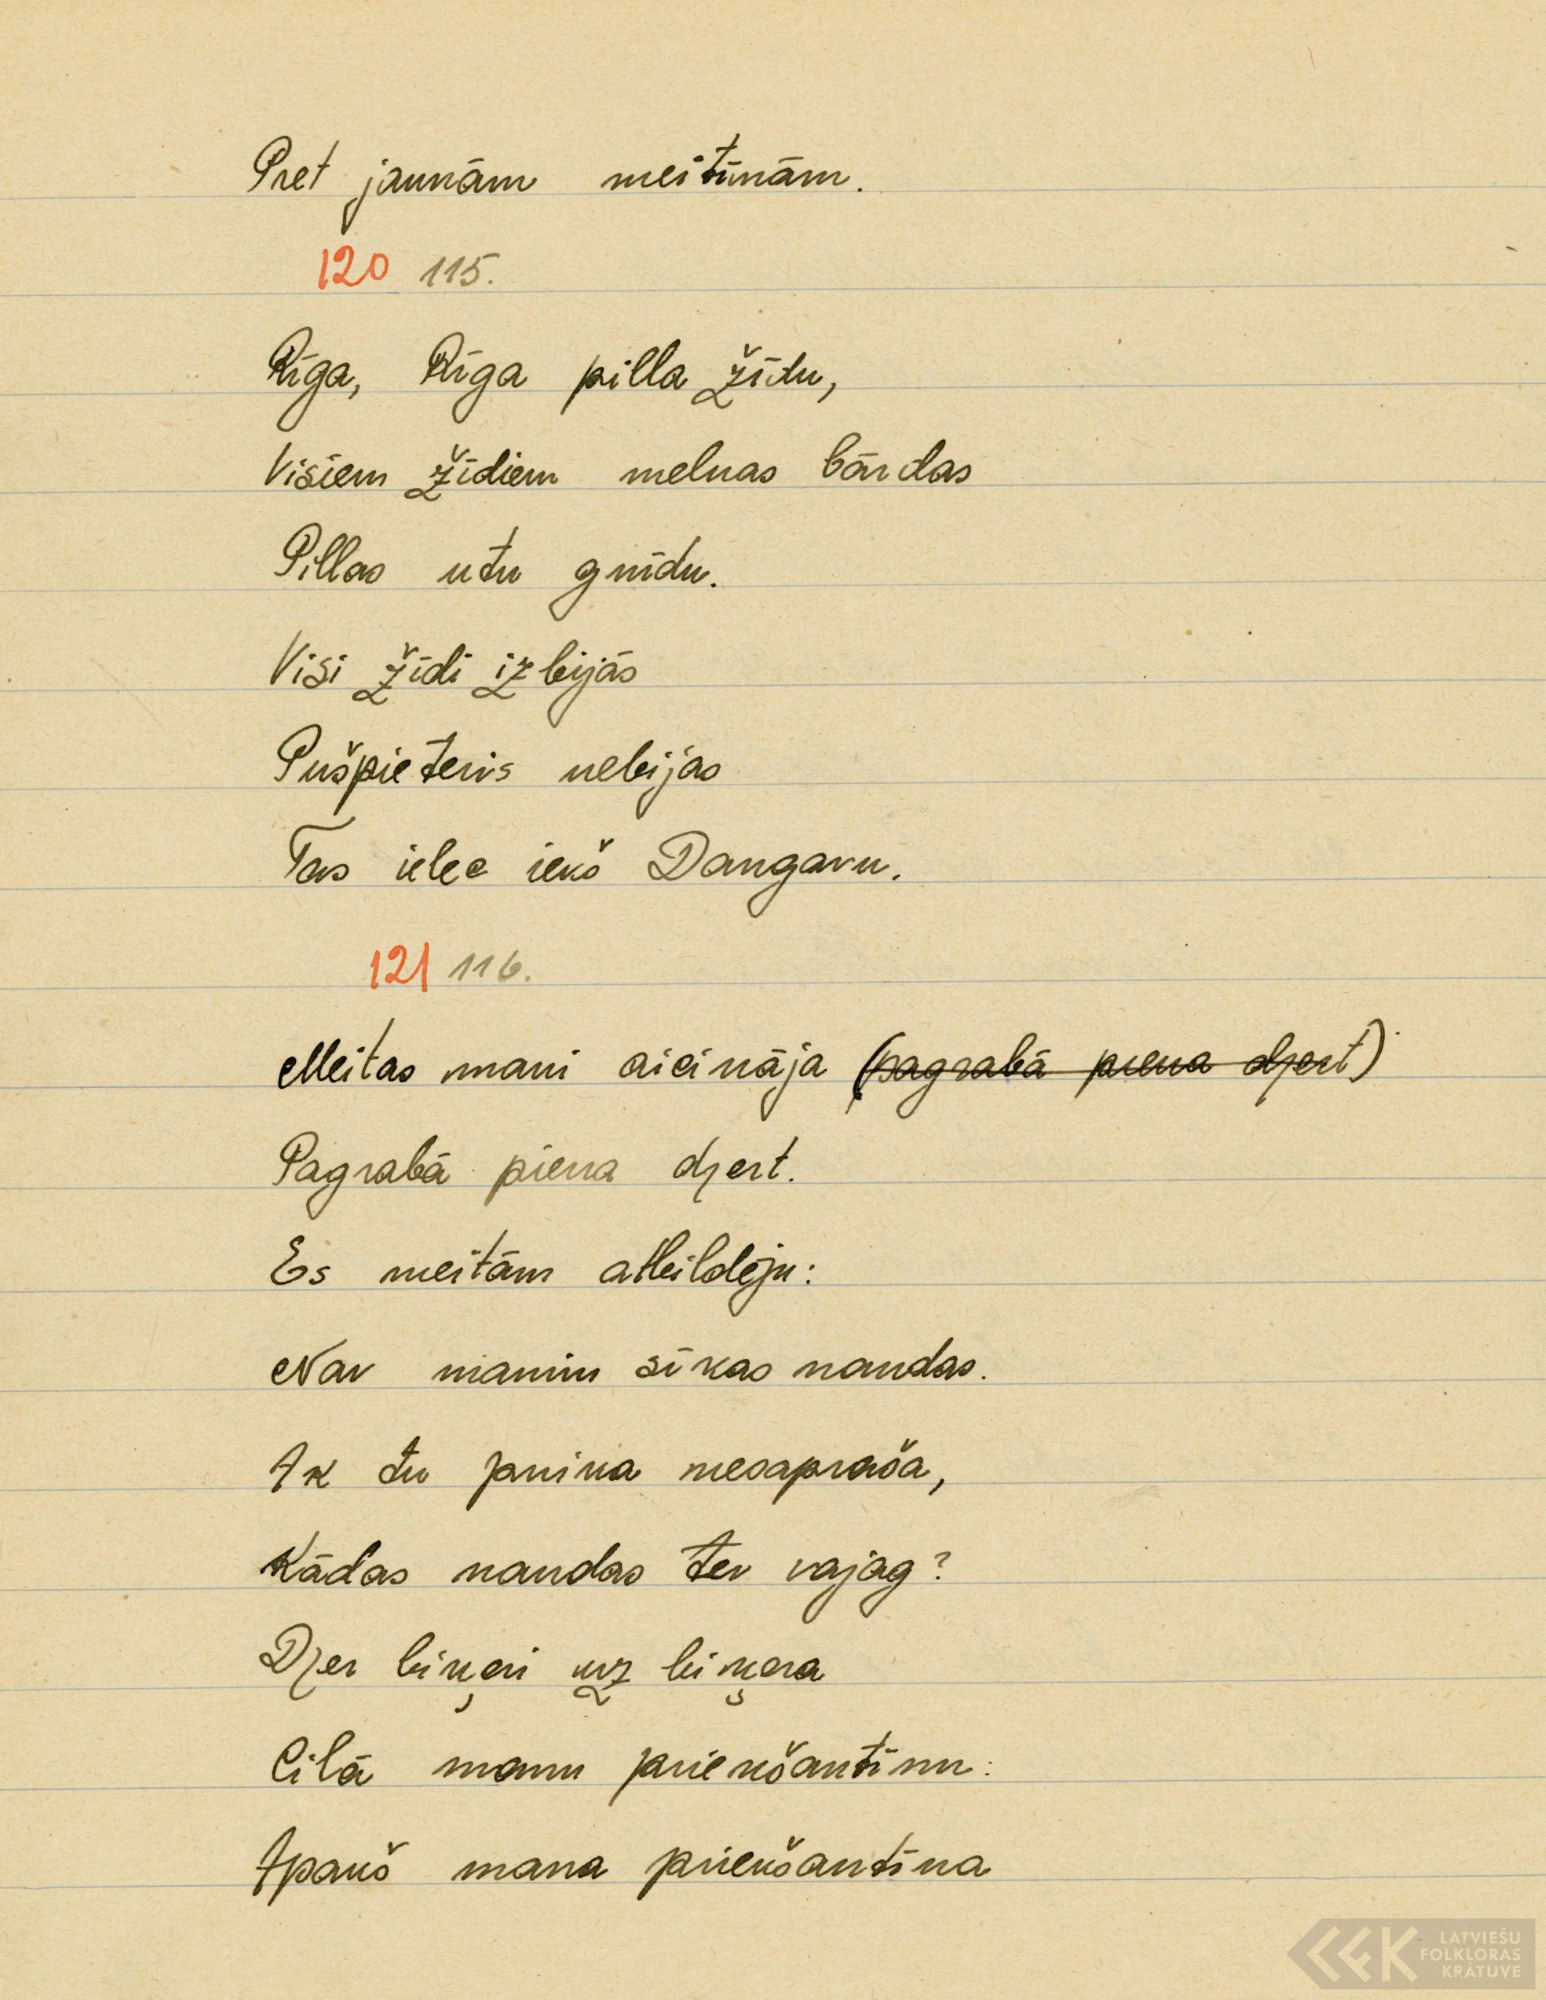 Pret jaunām meitīnām.
120 115.
Rīga, Rīga pilla žīdu,
Visiem žīdiem melnas bārdas
Pillas utu gnīdu.
Visi žīdi izbijās
Pušpieteris nebijas
Tas ielec iekš Dangavu.
121 116.
Meitas mani aicināja (pagrabā piena dzert)
Pagrabā piena dzert.
Es meitām atbildēju:
Nav manim sīkas naudas.
Ak tu puika nesapraša,
Kādas naudas tev vajag?
Dzer biķeri uz biķera
Cilā manu priekšautīnu:
Apakš mana priekšautīna
LATVIEŠU
FOLKLORAS
KRĀTUVE